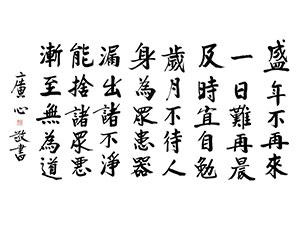 盛年不再來
一日難再晨
及時宜自勉
歲月不待人
身為眾患器
漏出諸不淨
能捨諸眾惡
漸至無為道
廣心敬書